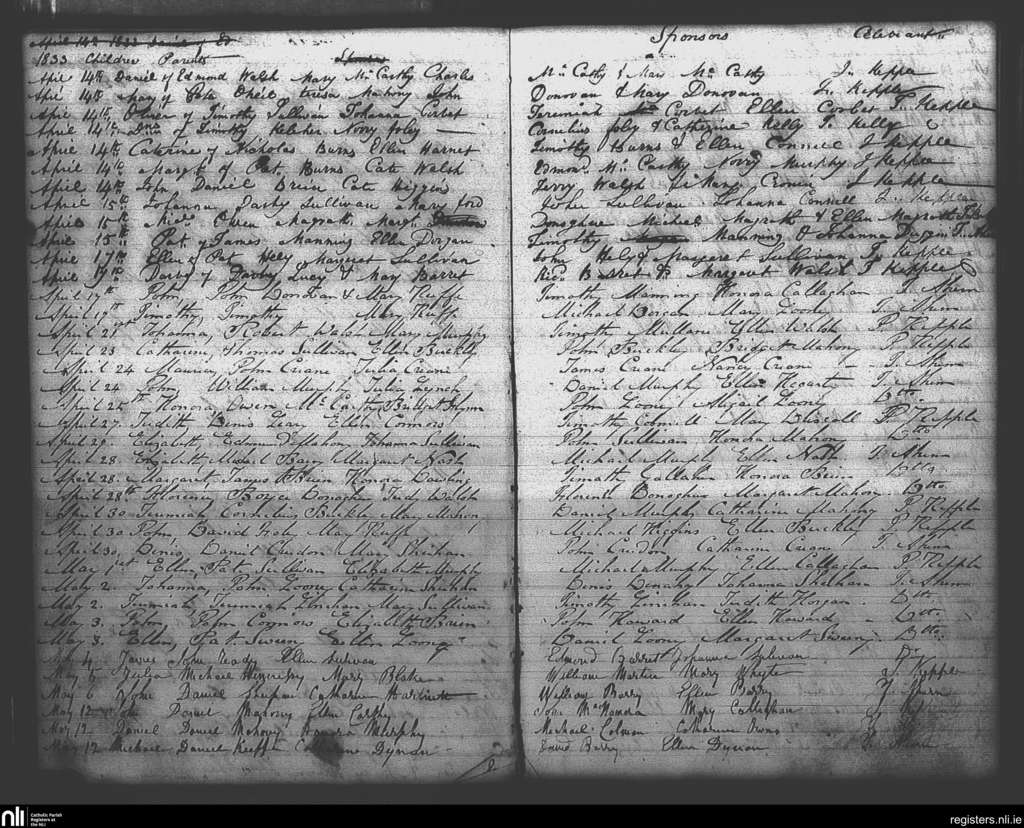 April 14th 1833 Daniel of Ed
1833 Children Parents Sponsors
April 14th Daniel of Edmond Walsh Mary McCarthy Charles
April 14th Mary of Pate Oneil Mahony John
April 14th Oliver of Timothy Sullivan Johanna Corbet
April 14th of Timothy Keleher Norry foley
April 14th Caterine of Nicholas Burns Ellen Harnet
April 14th Margt of Pat. Burns Cate Walsh
April 14th John Daniel Brien Cate Higgins
April 15th Johannah Darby Sullivan Mary ford
April 15th Owen Magrath Margt
April 15th Pat of James Manning Ellen Dorgan
April 17th Ellen of Pat Hely Margaret Sullivan
April 19th Darby of Darby Lucy & Mary Barret
April 17th John, John Donovan & Mary Keeffe
April 19th Timothy, Timothy Mary Keeffe
April 21st Johanna, Robert Walsh Mary Murphy
April 23 Catharine, Thomas Sullivan Ellen Buckley
April 24 Maurice, John Creane Julia Creane
April 24 John, William Murphy Julia Lynch
April 25th Honora Owen McCarthy Bridget Flynn
April 27. Judith Denis Leary Ellen Connors
April 29. Elizabeth Edmd OMahony Johanna Sullivan
April 28. Elizabeth, Michael Barry Margaret Nash
April 28. Margaret James OBrien Honora Dowling
April 28th Florence Boyce Donoghue Jud Walsh
April 30 Jeremiah Cornelius Buckley Mary Mahony
April 30 John, David Mary Keeffe
April 30, Denis, Daniel Creedon Mary Sheehan
May 1st Ellen, Pat Sullivan Elizabeth Murphy
May 2. Johanna, John Looney Catharine Sheehan
May 2. Jeremiah, Jeremiah Linehan Mary Sullivan
May 3. John, John Connors Elizabeth
May 3. Ellen, Pat Sweeny Ellen Looney
May 4 James John Ready Ellen Sulivan
May 6 Julia Michael Hennessy Mary Blake
May 6 John Daniel Sheehan Catharine
May 12 John Daniel Mahony Ellen Carthy
May 12 Daniel Daniel Mahony Honora Murphy
May 12 Michael Daniel Keeffe Catherine Dynan
Sponsors Celebrant
McCathy & Mary McCathy J. Kepple
Donovan & Mary Donovan J. Kepple
Jeremiah Corbet Ellen Corbet J. Kepple
Cornelius foley & Catherine Kelly T. Kelly
Timothy Burns & Ellen Connell J Kepple
Edmond McCarthy Norry Murphy J Kepple
Jerry Walsh & Mary Cronin J Kepple
John Sullivan Johanna Connell J. Kepple
Donoghue Michael Magrath & Ellen Magrath
Timothy Manning & Johanna Duggin
John Hely & Margaret Sullivan J. Kepple
Ricd Barret & Margaret Walsh J Kepple
Timothy Manning Honora Callaghan T. Ahern
Michael Dorgan Mary Looney T. Ahern
Timothy Mullane Ellen Walsh P. Kepple
John Buckley Bridget Mahony P. Kepple
James Creane Nancy Creane T. Ahern
Daniel Murphy Ellen Hegarty T. Ahern
John Looney Abigail Looney Ditto
Timothy Connell Mary Driscoll P. Kepple
John Sullivan Honora Mahony Ditto
Michael Murphy Ellen Nash T. Ahern
Timothy Callahan Honora Brien Ditto
Florence Donoghue Margaret Mahony Ditto
Daniel Murphy Catharine Mahony P. Kepple
Michael Higgins Ellen Buckley P. Kepple
John Creedon Catharine Creane T. Ahern
Michael Murphy Ellen Callaghan P Kepple
Denis Donahy Johanna Sheehan T. Ahern
Timothy Linehan Judith Horgan Ditto
John Howard Ellen Howard Ditto
Daniel Looney Margaret Sweeny Ditto
Edmond Barrett Johanna Sulivan Do
William Martin Mary Whyte J. Kepple
William Barry Ellen Barry T. Ahern
John McNamara Mary Callaghan
Michael Colman Catharine Owns
David Barry Ellen Dynan T. Ahern
nli
Catholic Parish
Registers at
the NLI
registers.nli.ie